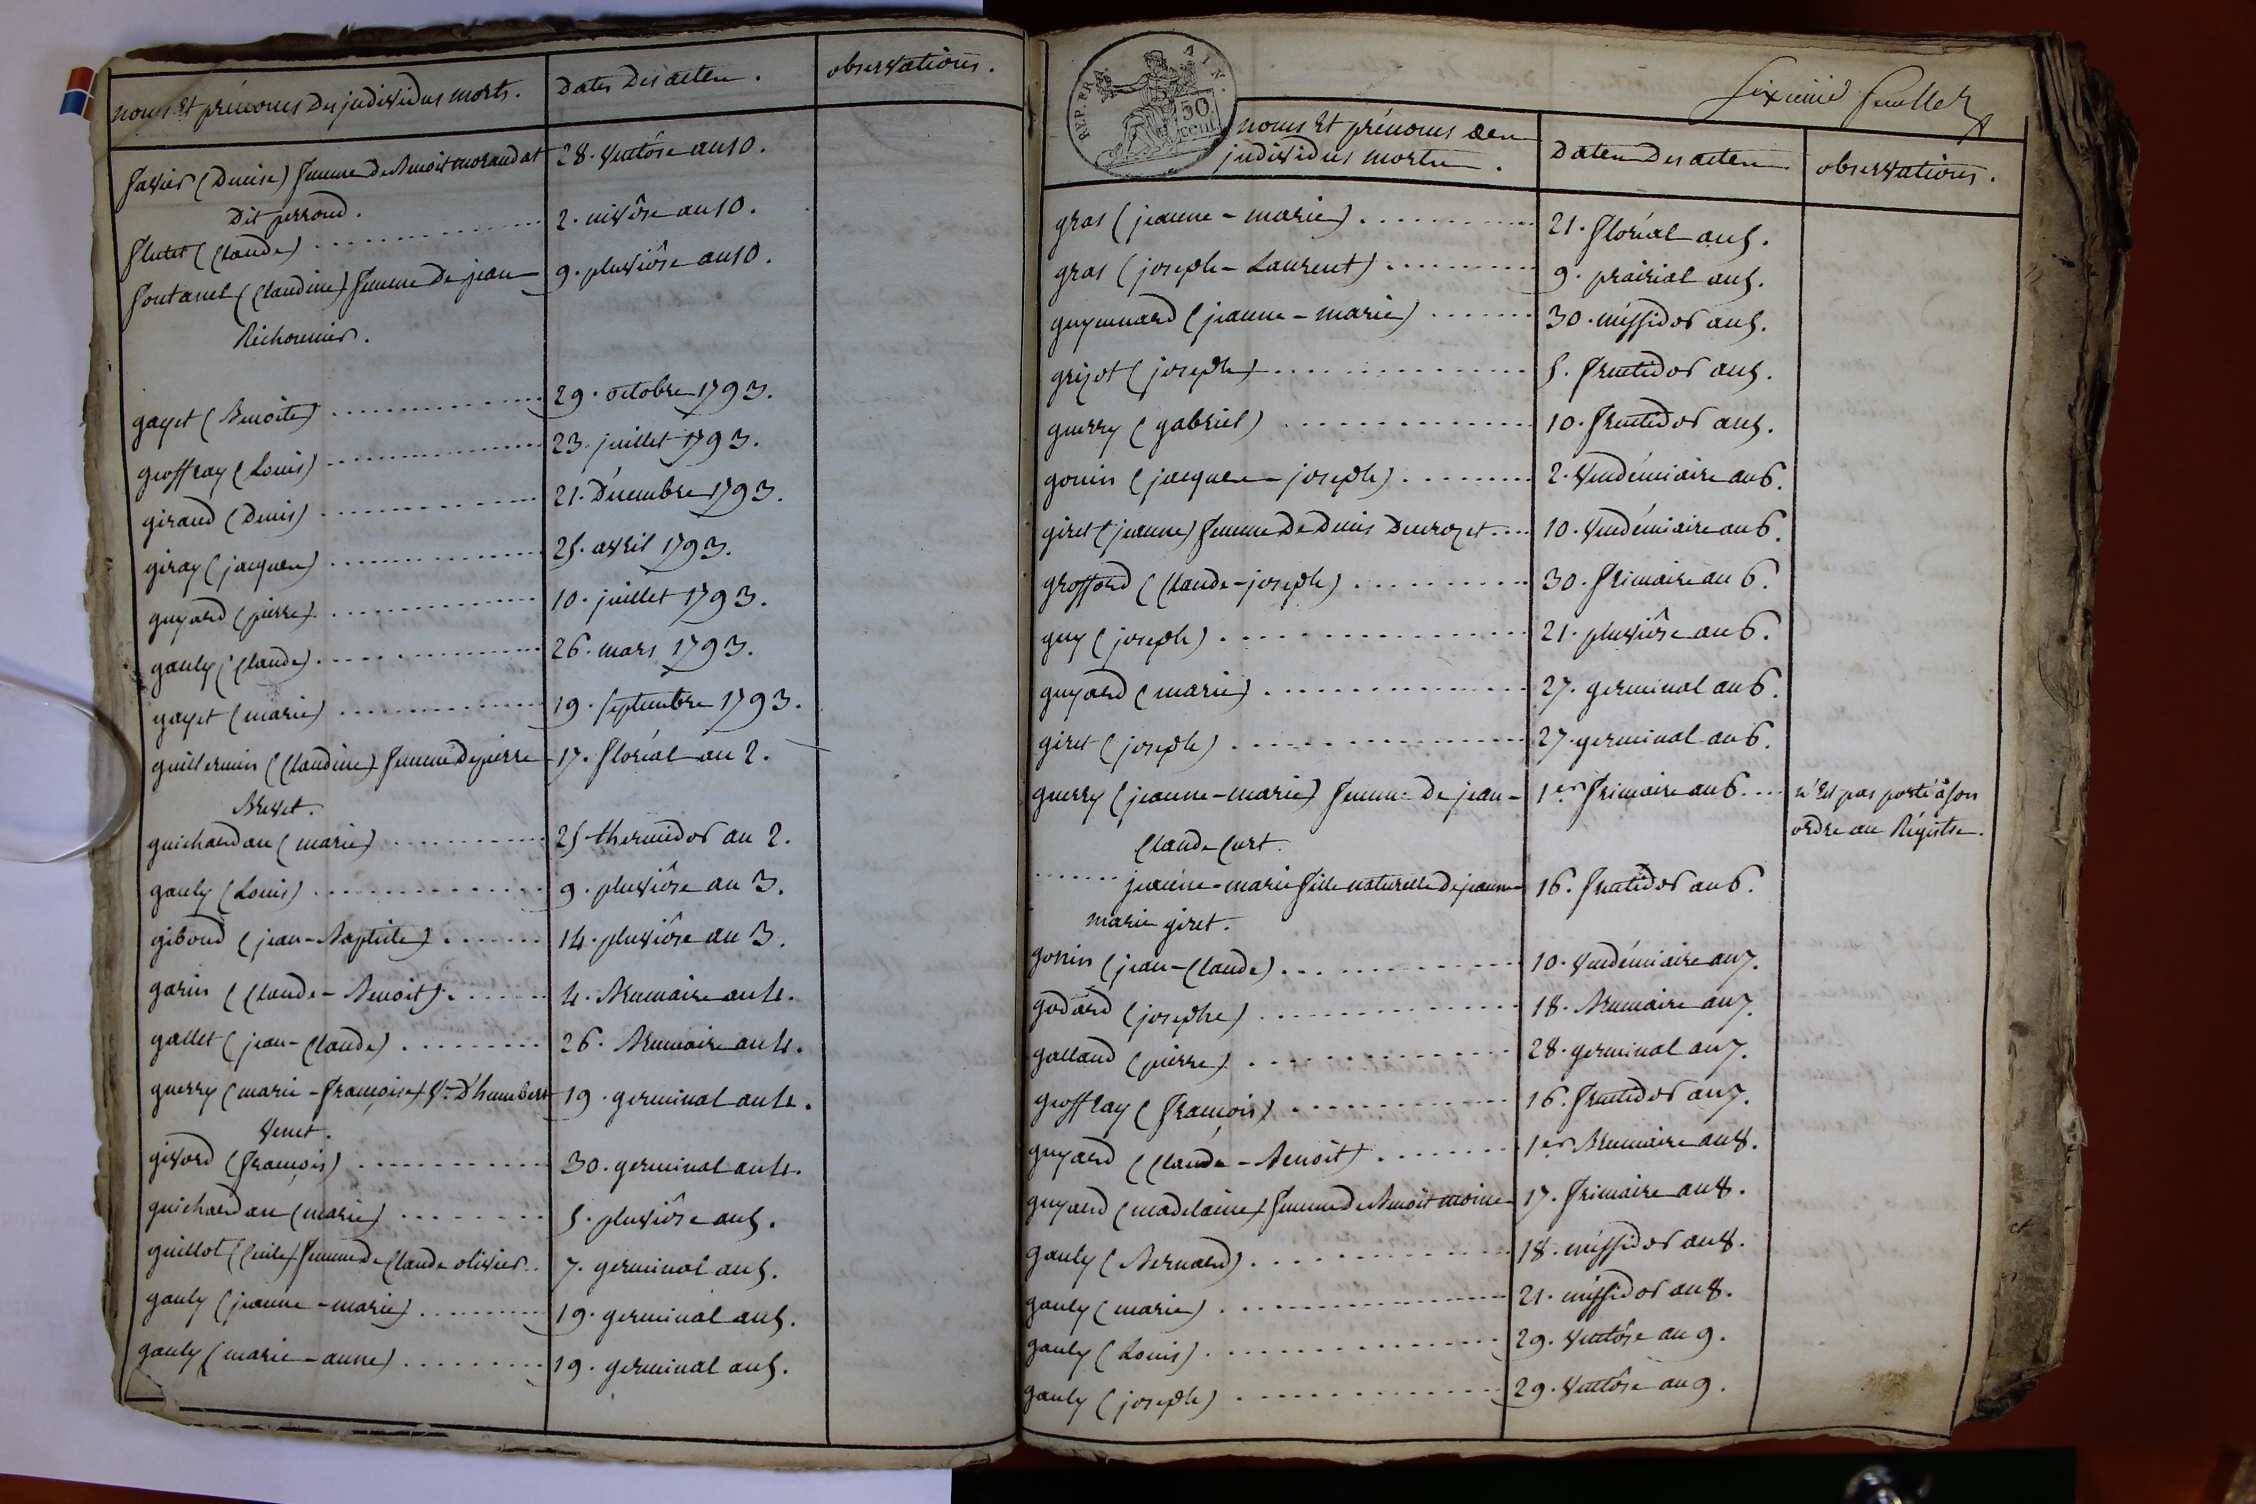 noms Et prénoms Des individus morts. Dates Des actes. observations.
favier (Denise) femme De Benoit morandat 28. Ventôse an 10.
Dit perroud.
flutet (Claude) 2. nivôse an 10.
fontanel (Claudine) femme De jean 9. pluviôse an 10.
Richonnier.
gayet (Benoite) 29. octobre 1793.
geoffray (Louis) 23. juillet 1793.
giraud (Denis) 21. Décembre 1793.
giray (jacques) 25. avril 1793.
guyard (pierre) 10. juillet 1793.
gauly (Claude) 26. mars 1793.
gayet (marie) 19. septembre 1793.
guillermin (Claudine) femme De pierre 17. floréal an 2.
Brevet.
guichardan (marie) 25 thermidor an 2.
gauly (Louis) 9. pluviôse an 3.
giboud (jean-Baptiste) 14. pluviôse an 3.
garin (Claude-Benoit) 4. Brumaire an 4.
gallet (jean-Claude) 26. Brumaire an 4.
guerry (marie-françoise) Ve. D'humbert 19. germinal an 4.
Venet.
givord (françois) 30. germinal an 4.
guichardan (marie) 5. pluviôse an 5.
guillot (Cécile) femme De Claude olivier 7. germinal an 5.
gauly (jeanne-marie) 19. germinal an 5.
gauly (marie-anne) 19. germinal an 5.
REP. FR. AIN.
50
cent
Sixième feuillet
noms Et prénoms des Dates Des actes observations.
individus morts.
gras (jeanne-marie) 21. floréal an 5.
gras (joseph-Laurent) 9. prairial an 5.
guyennard (jeanne-marie) 30. messidor an 5.
grizot (joseph) 5. fructidor an 5.
guerry (gabriel) 10. fructidor an 5.
gonin (jacques-joseph) 2. Vendémiaire an 6.
giret (jeanne) femme De Denis Ducrozet 10. Vendémiaire an 6.
groffond (Claude-joseph) 30. frimaire an 6.
guy (joseph) 21. pluviôse an 6.
guyard (marie) 27. germinal an 6.
giret (joseph) 27. germinal an 6.
guerry (jeanne-marie) femme De jean- 1er frimaire an 6. n'Est pas porté à son
ordre au Régistre.
Claude Curt.
jeanne-marie fille naturelle De jeanne 16. fructidor an 6.
marie giret.
gonin (jean-Claude) 10. Vendémiaire an 7.
godard (josephe) 18. Brumaire an 7.
galland (pierre) 28. germinal an 7.
geoffray (françois) 16. fructidor an 7.
guyard (Claude-Benoit) 1er Brumaire an 8.
guyard (madelaine) femme De Benoit moine 17. frimaire an 8.
gauly (Bernard) 18. messidor an 8.
gauly (marie) 21. messidor an 8.
gauly (Louis) 29. Ventôse an 9.
gauly (joseph) 29. Ventôse an 9.